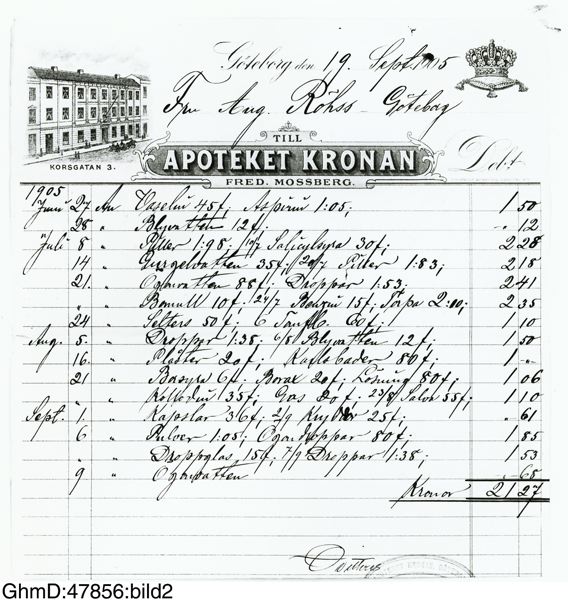 Göteborg den 19 Sept. 1905
Fru Aug. Röhss Göteborg
KORSGATAN 3.
TILL
APOTEKET KRONAN
FRED. MOSSBERG.
Debet
1905
Juni 27 An Vaselin 45 f; Aspirin 1:05; 1 50
" 28 " Blyvatten 12 f; " 12
Juli 8 " Piller 1:98; 10/7 Salicylsyra 30 f; 2 28
" 14 " Gurgelvatten 35 f; 20/7 Piller 1:83; 2 18
" 21 " Ögonvatten 88 f; Droppar 1:53; 2 41
" " " Bomull 10 f; Benzin 15 f; 2:10; 2 35
" 24 " Selters 50 f; 6 60 f; 1 10
Aug. 5 " Droppar 1:38; 6/8 Blyvatten 12 f; 1 50
" 16 " Plåster 20 f; Karlsbader 80 f; 1 "
" 21 " Borsyra 6 f; Borax 20 f; Lösning 80 f; 1 06
" " " Kollodium 35 f; Gas 20 f; 23/8 55 f; 1 10
Sept. 1 " Kapslar 36 f; 2/9 25 f; " 61
" 6 " Pulver 1:05; Ögondroppar 80 f; 1 85
" " " Droppglas 15 f; 7/9 Droppar 1:38; 1 53
" 9 " Ögonvatten " 68
Kronor 21 27
GhmD:47856:bild2